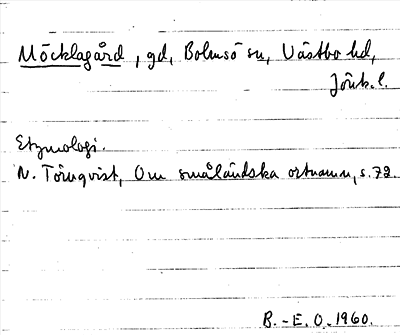 Möcklagård, gd, Bolmsö sn, Västbo hd,
Jönk. l.
Etymologi.
N. Törnqvist, Om småländska ortnamn, s. 72.
B.-E. O. 1960.